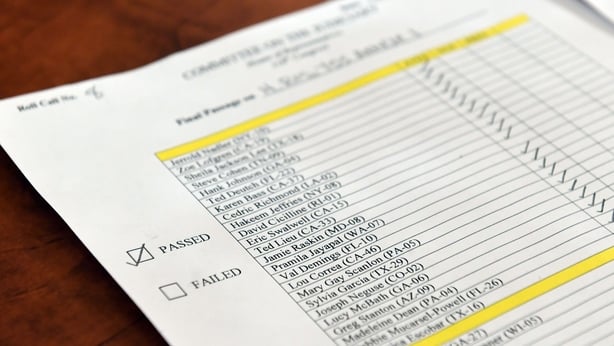 COMMITTEE ON THE JUDICIARY
House of Representatives
Roll Call No. 8
Final Passage on H RES 755 Article I
Jerrold Nadler (NY-10)
Zoe Lofgren (CA-19)
Sheila Jackson Lee (TX-18)
Steve Cohen (TN-09)
Hank Johnson (GA-04)
Ted Deutch (FL-22)
Karen Bass (CA-37)
Cedric Richmond (LA-02)
Hakeem Jeffries (NY-08)
David Cicilline (RI-01)
Eric Swalwell (CA-15)
Ted Lieu (CA-33)
Jamie Raskin (MD-08)
Pramila Jayapal (WA-07)
Val Demings (FL-10)
Lou Correa (CA-46)
Mary Gay Scanlon (PA-05)
Sylvia Garcia (TX-29)
Joseph Neguse (CO-02)
Lucy McBath (GA-06)
Greg Stanton (AZ-09)
Madeleine Dean (PA-04)
Mucarsel Powell (FL-26)
Escobar (TX-16)
(WI-05)
PASSED
FAILED